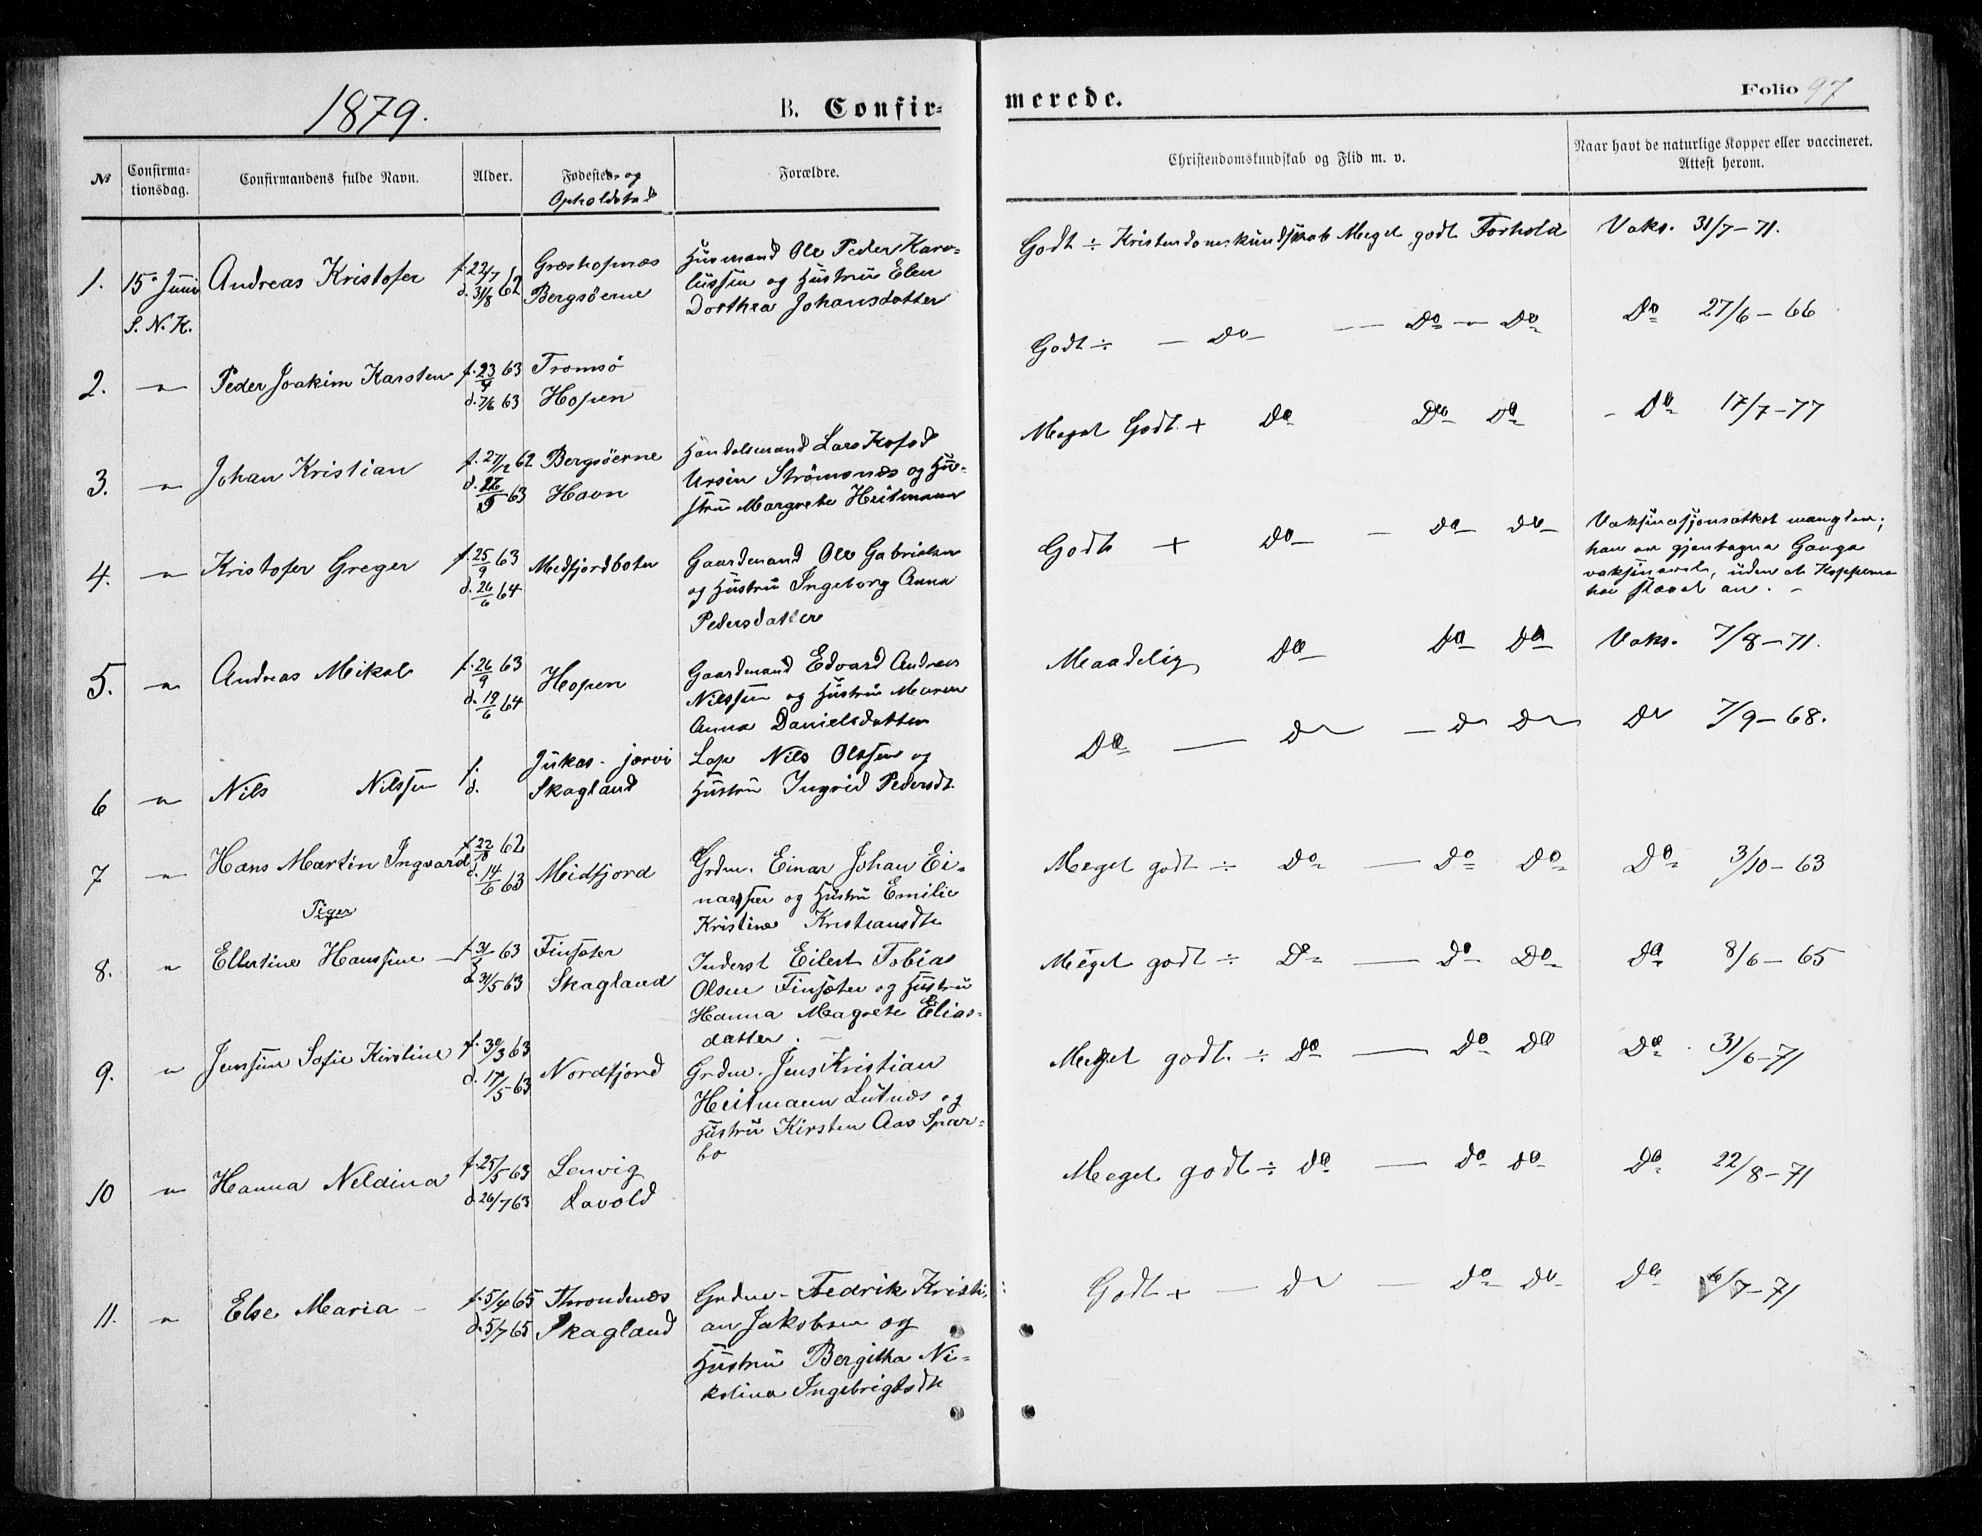 1879.
B. Confir-
№
Confirma-
tionsdag.
Confirmandens fulde Navn.
Alder.
Fødested og
Opholdsted
Forældre.
1. 15 Juni Andreas Kristofer f. 22/7 62 Græshopnæs Husmand Ole Peder Karo-
S. N. K. d. 31/8 Bergsøerne lussen og Hustru Elen
Dorthea Johansdatter
2. — Peder Joakim Karsten f. 23/4 63 Tromsö
d. 7/6 63 Hopen
3. — Johan Kristian f. 27/12 62 Bergsøerne Handelsmand Lars Kofod
d. 63 Havn Ursin Strömsnæs og Hu-
stru Margrete Heitmann
4. — Kristofer Greger f. 25/9 63 Medfjordboten Gaardmand Ole Gabrielsen
d. 26/6 64 og Hustru Ingeborg Anna
Pedersdatter
5. — Andreas Mikal f. 26/9 63 Hopen Gaardmand Edvard Andreas
d. 19/6 64 Nilssen og Hustru Maren
Anna Danielsdatter
6 — Nils Nilssen f. Jukas-jærvi Lap Nils Olssen og
d. Skagland Hustru Ingrid Pedersdt.
7 — Hans Martin Ingvard f. 62 Medfjord Grdm. Einar Johan Ei-
d. 14/6 63 narssen og Hustru Emilie
Kristine Kristiansdtr
Piger
8. " Ellertine Hanssine — f. 63 Finsæter Inderst Eilert Tobias
d. 31/5 63 Skagland Olsen Finsæter og Hustru
Hanna Magrete Elias-
datter. —
9. " Jensine Sofie Kirstine f. 30/3 63 Nordfjord Grdm. Jens Kristian
d. 17/5 63 Heitmann Lutnæs og
Hustru Kirsten Aas Spar-
bo
10 " Hanna Neldina f. 25/5 63 Lenvig
d. 26/7 63 Lavold
11. " Else Maria — f. 5/4 65 Throndenæs Grdm. Fedrik Kristi-
d. 5/7 65 Skagland an Jakobsen og
Hustru Bergitha Ni-
kolina Ingebrigtsdtr
merede.
Folio 97
Christendomskundskab og Flid m. v.
Naar havt de naturlige Kopper eller vaccineret.
Attest herom.
Godt ÷ Kristendomskundskab Meget godt Forhold Vaks. 31/7 – 71.
Godt ÷ — Do — — Do — Do Do 27/6 – 66
Meget Godt + Do Do Do — Do 17/7 – 77
Godt + Do — Do Do Vaksinasjonsattest mangler;
han er gjentagne Gange
vaksineret, uden at Kopperne
har slaaet an. —
Maadelig Do Do Do Vaks. 7/8 – 71.
Do — Do — Do Do Do 7/9 – 68.
Meget godt ÷ Do — Do Do Do 3/10 – 63
Meget godt ÷ Do — Do Do Do 8/6 – 65
Meget godt. ÷ Do — Do Do Do 31/6 – 71
Meget godt ÷ Do — Do Do Do 22/8 – 71
Godt + — Do — Do Do Do 6/7 – 71